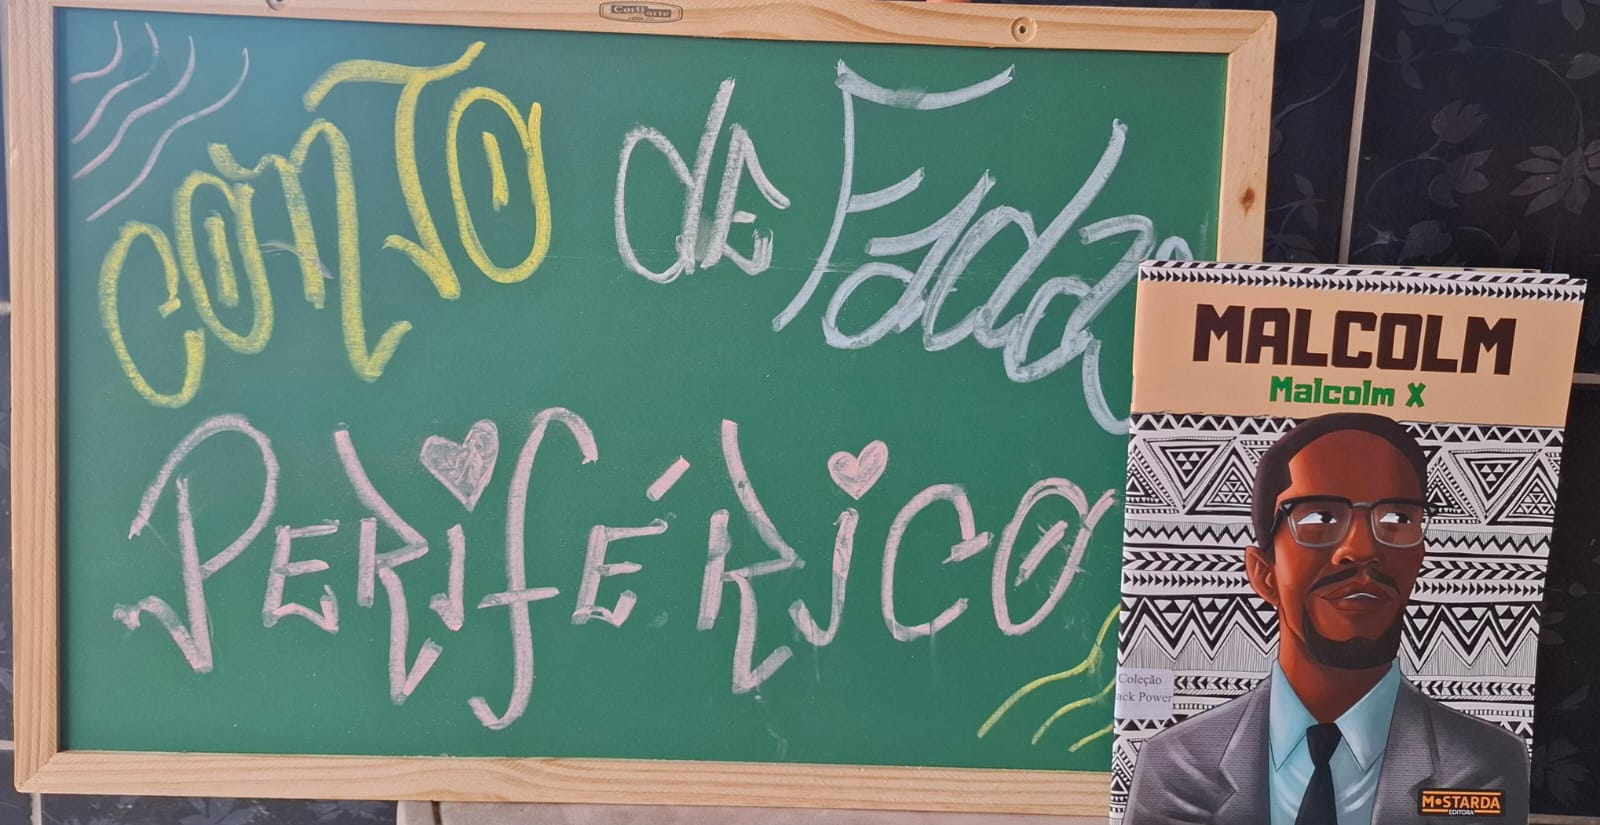 Cortiarte
CONTO de Fadas
PERIFÉRICO
MALCOLM
Malcolm X
Coleção
ack Power
MOSTARDA
EDITORA